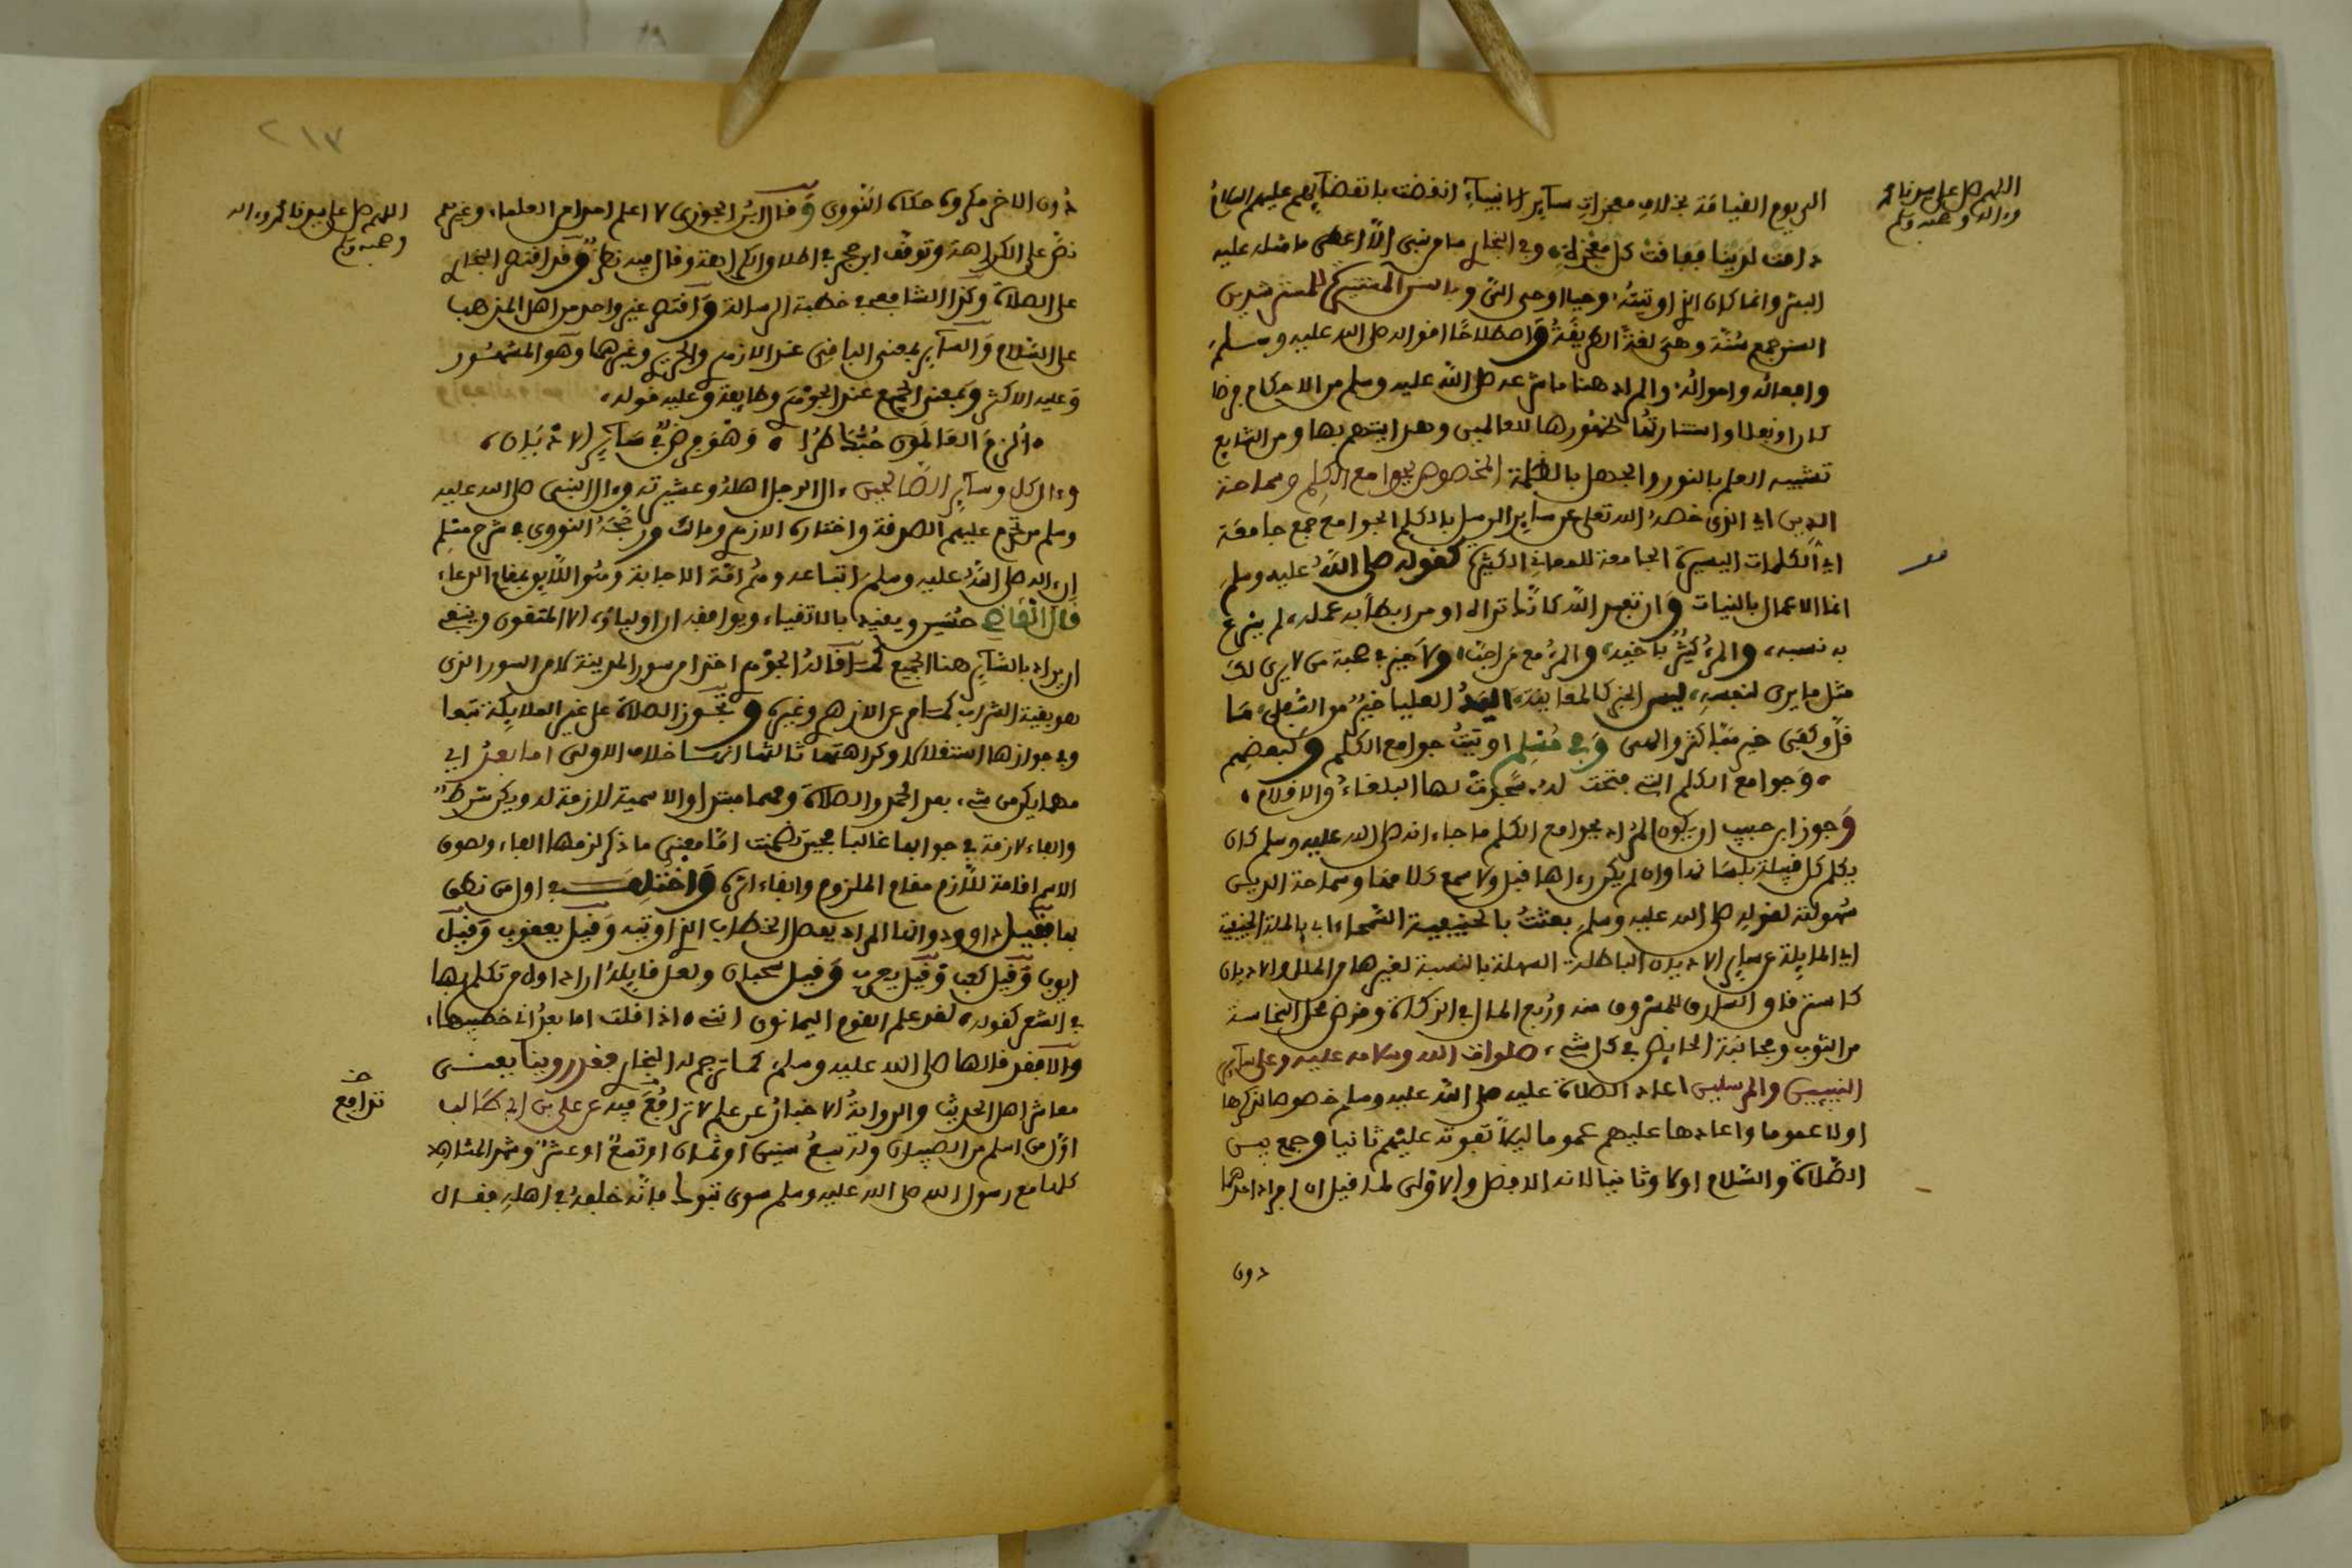 اللهم صل على سيدنا محمد
وءاله وصحبه وسلم
الى يوم القيامة بخلاف معجزات سآير الانبيآء انقضت بانقضآيهم عليهم السلام
دامت لدينا ففاقت كل معجزة، وفي البخاري ما من نبي الا اعطي ما مثله عليه
البشر وانما كان الذي اوتيته وحيا اوحى الله وبالسنن المستنيرة للمسترشدين
السنن جمع سُنّة وهي لغة الطريقة واصطلاحا اقواله صلى الله عليه وسلم
وافعاله واحواله والمراد هنا ما شرعه صلى الله عليه وسلم من الاحكام فرضا
كان او نفلا واستنارتها ظهورها للعالمين وهدايتهم بها ومن الشايع
تشبيه العلم بالنور والجهل بالظلمة المخصوص بجوامع الكلم وسماحة
الدين اي الذي خصه الله تعلى عن سآير الرسل بالكلم الجوامع جمع جامعة
اي الكلمات اليسيرة الجامعة للمعاني الكثيرة كقوله صلى الله عليه وسلم
انما الاعمال بالنيات وان تعبد الله كانك تراه او من ابطأ به عمله، لم يسرع
به نسبه، والمرء كثير باخيه، والمرء مع من احب، ولا خير في صحبة من لا يرى لك
مثل ما يرى لنفسه، ليس الخبر كالمعاينة، اليد العليا خير من السفلى، ما
قل وكفى خير مما كثر والهى وفي مسلم اوتيت جوامع الكلم ولبعضهم
، وجوامع الكلم التي فتحت له، سجدت لها البلغاء والاقلام،
وجوز ابن حبيب ان يكون المراد بجوامع الكلم ما جاء انه صلى الله عليه وسلم كان
يكلم كل قبيلة بلسانها وان لم يكن رءاها قبل ولا سمع كلامها وسماحة الدين
سهولته لقوله صلى الله عليه وسلم بعثت بالحنيفية السمحاء اي بالملة الحنيفية
اي المايلة عن سآير الاديان الباطلة السهلة بالنسبة لغيرها من الملل والاديان
كاسترقاق السارق للمسروق منه وربع المال في الزكاة وقرض محل النجاسة
من الثوب ومجانبة الحايض في كل شيء، صلوات الله وسلامه عليه وعلى سآير
النبيين والمرسلين اعاد الصلاة عليه صلى الله عليه وسلم خصوصا لذكرها
اولا عموما واعادها عليهم عموما ليلا تفوته عليهم ثانيا وجمع بين
الصلاة والسلام اولا وثانيا لانه الافضل والاولى لما قيل ان افراد احدهما
دون
٢١٧
اللهم صل على سيدنا محمد وءاله
وصحبه وسلم
دون الاخر مكروه حكاه النووي وقال ابن الجوزي لا اعلم احدا من العلماء وغيرهم
نص على الكراهة وتوقف ابن حجر في اطلاق الكراهة وقال فيه نظر وقد اقتصر البخاري
على الصلاة وكذا الشافعي في خطبة الرسالة واقتصر غير واحد من اهل المذهب
على السلام والسآير بمعنى الباقي عند الازهري والحريري وغيرهما وهو المشهور
وعليه الاكثر وبمعنى الجميع عند الجوهري وطايفة وعليه قوله،
، الزم العالمون حبك طرا، وهو فرض في سآير الاديان،
وءال كل وسآير الصالحين، ءال الرجل اهله وعشيرته وءال النبي صلى الله عليه
وسلم من تحرم عليهم الصدقة واختاره الازهري ومالك ورجحه النووي في شرح مسلم
ان ءاله صلى الله عليه وسلم اتباعه وهم امة الاجابة وهو اللايق بمقام الدعاء
قال القاضي حسين ويقيد بالاتقياء، ويوافقه ان اولياؤه الا المتقون وينبغي
ان يراد بالسآير هنا الجميع كما قاله الجوهري اخذا من سور المدينة لا من السور الذي
هو بقية الشراب كما مر عن الازهري وغيره وتجوز الصلاة على غير الملايكة تبعا
وفي جوازها استقلالا وكراهتها ثالثها انها خلاف الاولى اما بعد اي
مهما يكن من شيء، بعد الحمد والصلاة ومهما مبتدا والاسمية لازمة له ويكن شرط
والفاء لازمة في جوابها غالبا فحين تضمنت اما معنى ما ذكر لزمها الفاء ولصوق
الاسم اقامة للازم مقام الملزوم وابقاء اثره واختلف في اول من نطق
بها فقيل داوود وانها المراد بفصل الخطاب الذي اوتيه وقيل يعقوب وقيل
ايوب وقيل كعب وقيل يعرب وقيل سحبان ولعل قايله اراد اول من تكلم بها
في الشعر كقوله، لقد علم القوم اليمانون انني، اذا قلت اما بعد اني خطيبها،
والا فقد قالها صلى الله عليه وسلم، كما ترجم له البخاري فقد روينا بعنى
معاشر اهل الحديث والرواية الاخبار عن علم لا ترافع فيه عن علي بن ابي طالب
ترافع
اول من اسلم من الصبيان وله سبع سنين او ثمان او تسع او عشر وشهد المشاهد
كلها مع رسول الله صلى الله عليه وسلم سوى تبوك فانه خلفه في اهله فقال